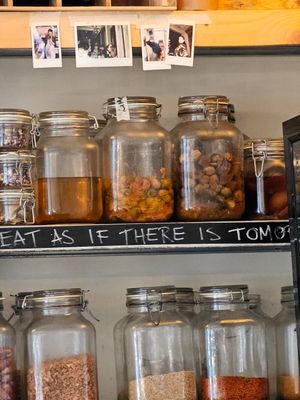 EAT AS IF THERE IS TOMO